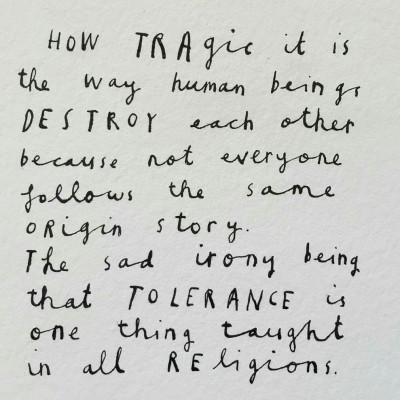 HOW TRAgic it is
the way human beings
DESTROY each other
because not everyone
follows the same
oRigin story.
The sad irony being
that TOLERANCE is
one thing taught
in all REligions.